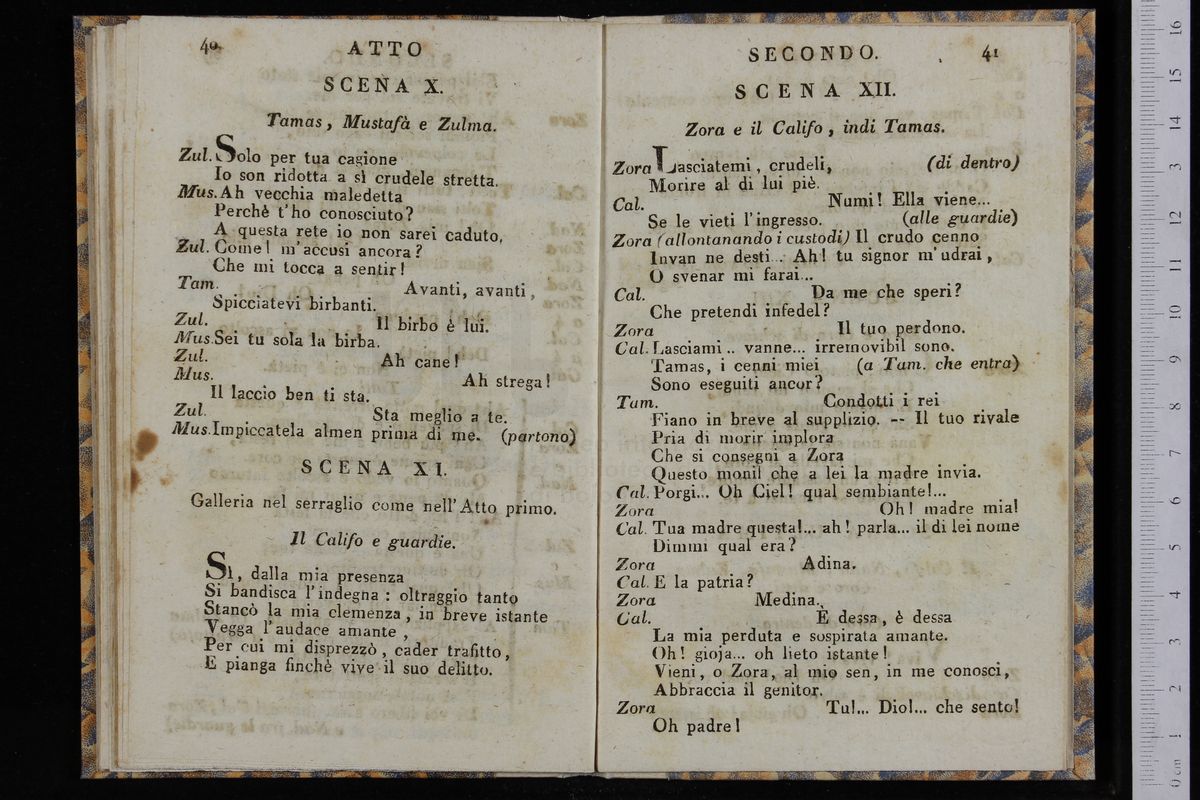 40 ATTO
SCENA X.
Tamas, Mustafà e Zulma.
Zul. Solo per tua cagione
Io son ridotta a sì crudele stretta.
Mus. Ah vecchia maledetta
Perchè t'ho conosciuto?
A questa rete io non sarei caduto,
Zul. Come! m'accusi ancora?
Che mi tocca a sentir!
Tam. Avanti, avanti,
Spicciatevi birbanti.
Zul. Il birbo è lui.
Mus. Sei tu sola la birba.
Zul. Ah cane!
Mus. Ah strega!
Il laccio ben ti sta.
Zul. Sta meglio a te.
Mus. Impiccatela almen prima di me. (partono)
SCENA XI.
Galleria nel serraglio come nell'Atto primo.
Il Califo e guardie.
Sì, dalla mia presenza
Si bandisca l'indegna: oltraggio tanto
Stancò la mia clemenza, in breve istante
Vegga l'audace amante,
Per cui mi disprezzò, cader trafitto,
E pianga finchè vive il suo delitto.
SECONDO. 41
SCENA XII.
Zora e il Califo, indi Tamas.
Zora Lasciatemi, crudeli, (di dentro)
Morire al di lui piè.
Cal. Numi! Ella viene...
Se le vieti l'ingresso. (alle guardie)
Zora (allontanando i custodi) Il crudo cenno
Invan ne desti... Ah! tu signor m'udrai,
O svenar mi farai...
Cal. Da me che speri?
Che pretendi infedel?
Zora Il tuo perdono.
Cal. Lasciami.. vanne... irremovibil sono.
Tamas, i cenni miei (a Tam. che entra)
Sono eseguiti ancor?
Tam. Condotti i rei
Fiano in breve al supplizio. -- Il tuo rivale
Pria di morir implora
Che si consegni a Zora
Questo monil che a lei la madre invia.
Cal. Porgi... Oh Ciel! qual sembiante!...
Zora Oh! madre mia!
Cal. Tua madre questa!... ah! parla... il di lei nome
Dimmi qual era?
Zora Adina.
Cal. E la patria?
Zora Medina.
Cal. E dessa, è dessa
La mia perduta e sospirata amante.
Oh! gioja... oh lieto istante!
Vieni, o Zora, al mio sen, in me conosci,
Abbraccia il genitor.
Zora Tu!... Dio!... che sento!
Oh padre!
0 cm 1 2 3 4 5 6 7 8 9 10 11 12 13 14 15 16